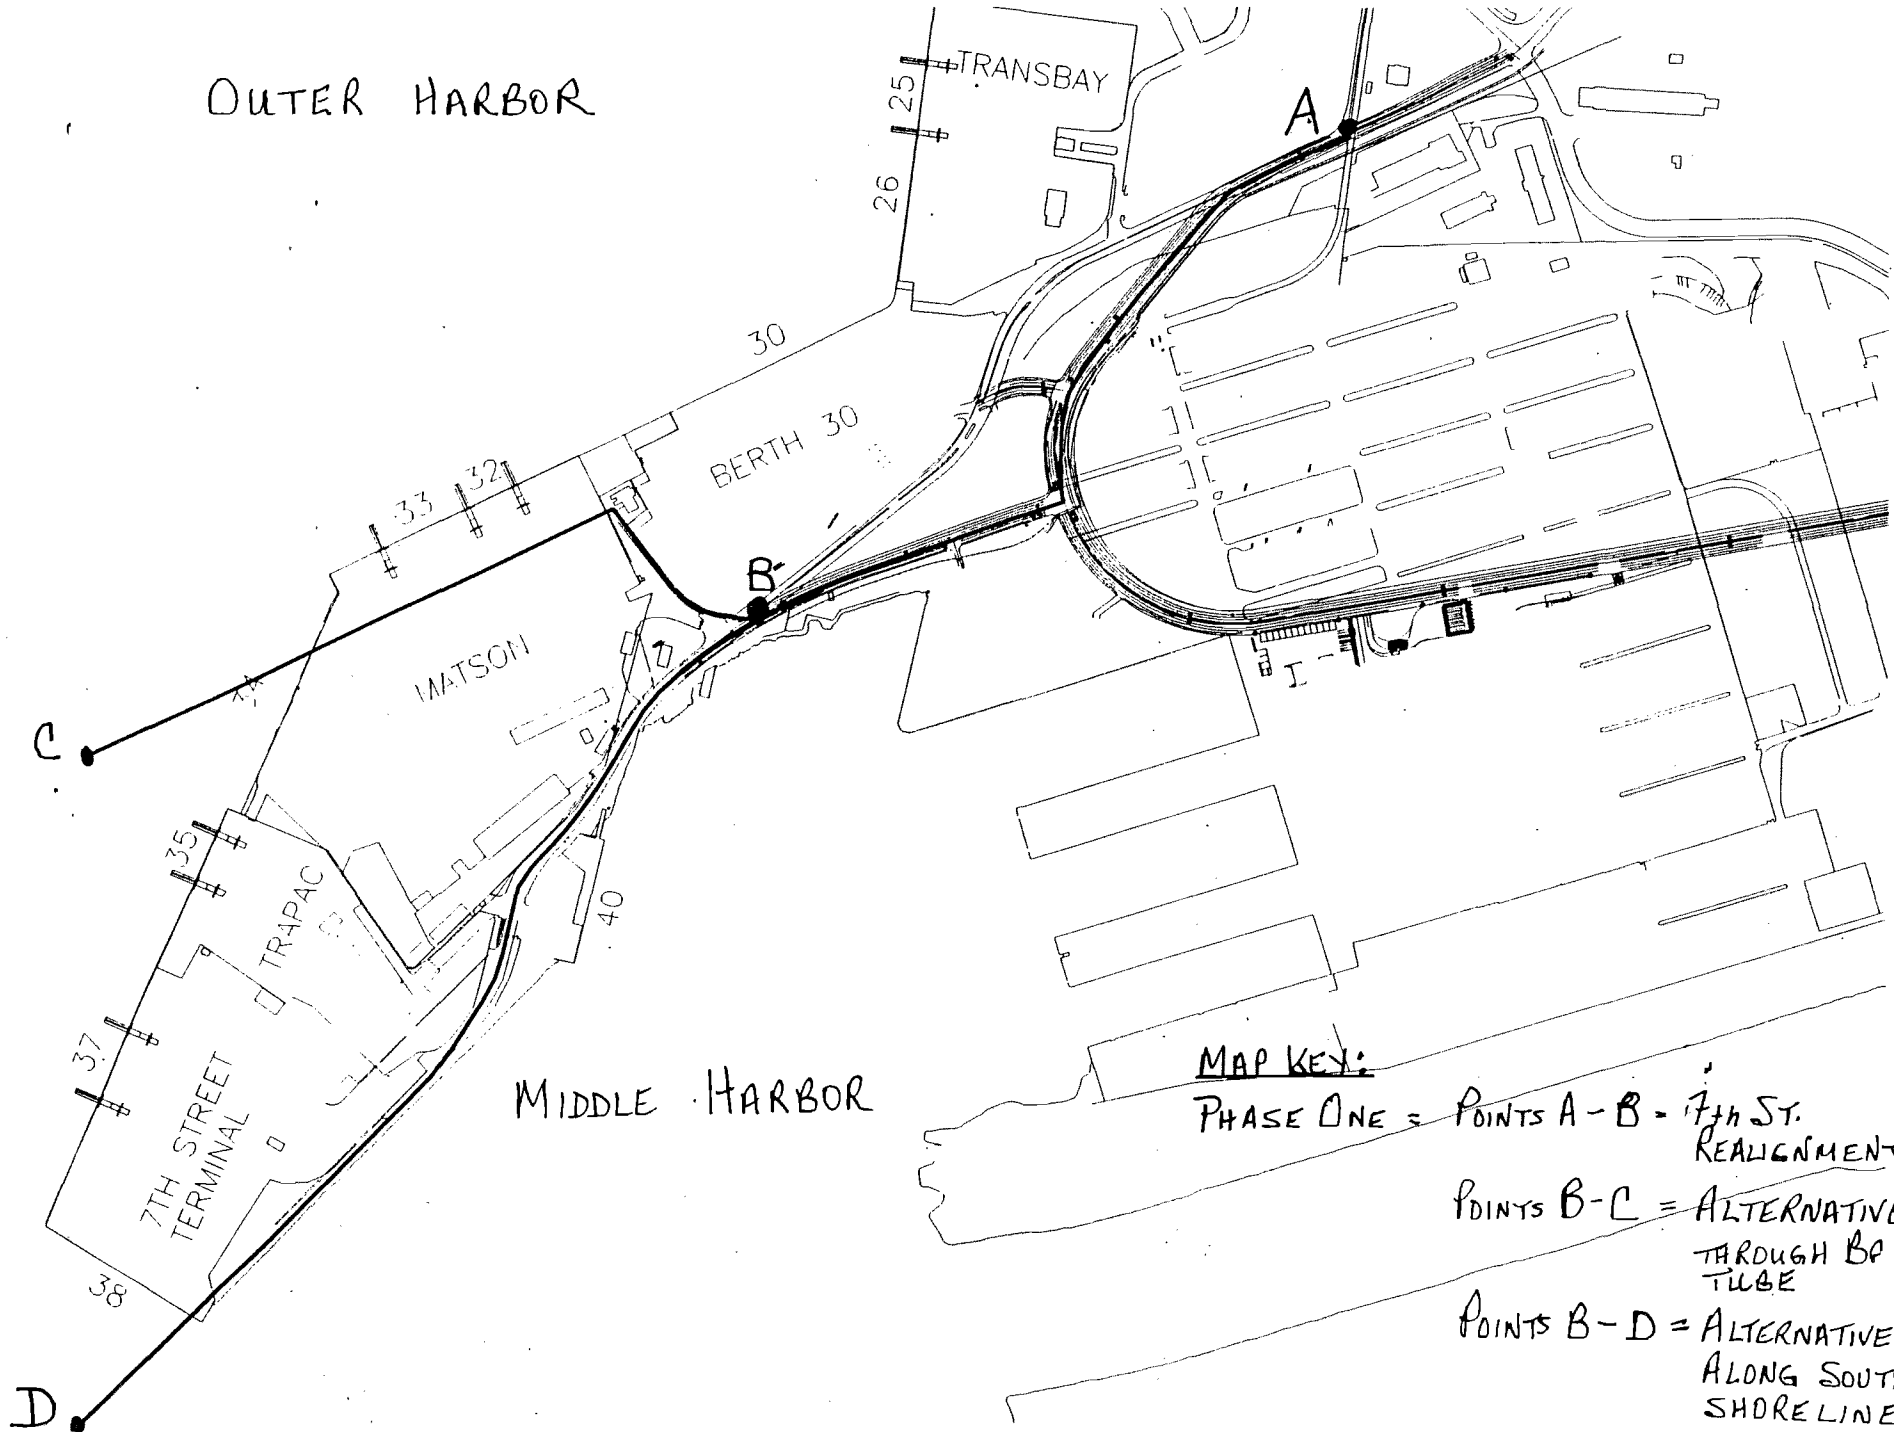 OUTER HARBOR
TRANSBAY
25
26
A
30
BERTH 30
32
33
B
MATSON
C
35
TRAPAC
40
37
7TH STREET
TERMINAL
38
MIDDLE HARBOR
D
MAP KEY:
PHASE ONE = POINTS A-B = 7th ST.
REALIGNMENT
POINTS B-C = ALTERNATIVE
THROUGH
TUBE
POINTS B-D = ALTERNATIVE
ALONG
SHORELINE